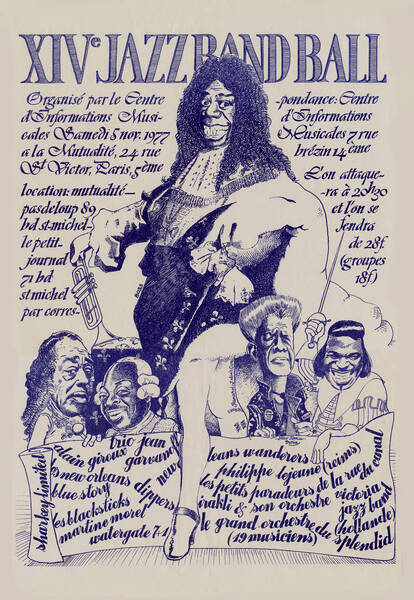 XIVe JAZZ BAND BALL
Organisé par le Centre
d'Informations Musi-
cales Samedi 5 nov. 1977
a la Mutualité, 24 rue
St Victor, Paris, 5ème
location: mutualité-
pasdeloup 89
bd st-michel
le petit-
journal
71 bd
st michel
par corres-
-pondance: Centre
d'Informations
Musicales 7 rue
brézin 14ème
L'on attaque-
ra à 20h30
et l'on se
fendra
de 28f.
(groupes
18f.)
sharkey limited
trio jean
alain giroux garvanoff
les new orleans new
blue story dippers
les blacksticks
martine morel
watergate 7+1
leans wanderers
philippe lejeune (reims)
les petits paradeurs de la rue du canal
irakli & son orchestre victoria
jazz band
le grand orchestre du (hollande)
(19 musiciens) splendid